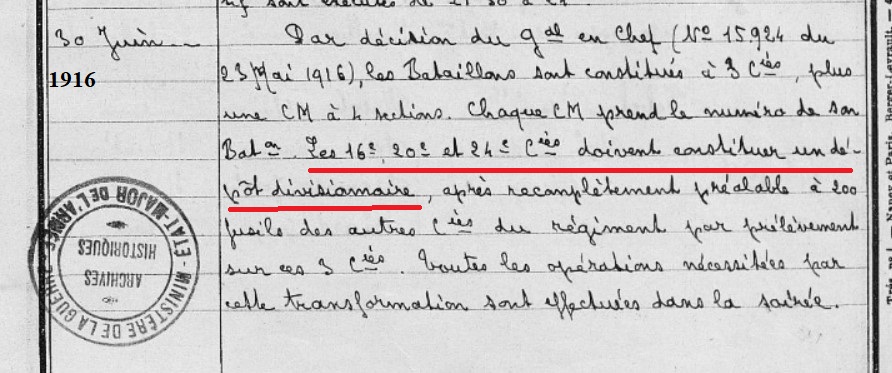 30 Juin
1916
Par décision du gal en Chef (No 15.924 du
23 Mai 1916), les Bataillons sont constitués à 3 Cies, plus
une CM à 4 sections. Chaque CM prend le numéro de son
Baton. Les 16e, 20e et 24e Cies doivent constituer un dé-
pôt divisionnaire, après recomplètement préalable à 200
fusils des autres Cies du régiment par prélèvement
sur ces 3 Cies. Toutes les opérations nécessitées par
cette transformation sont effectuées dans la soirée.
MINISTÈRE DE LA GUERRE
ETAT-MAJOR DE L'ARMÉE
ARCHIVES
HISTORIQUES